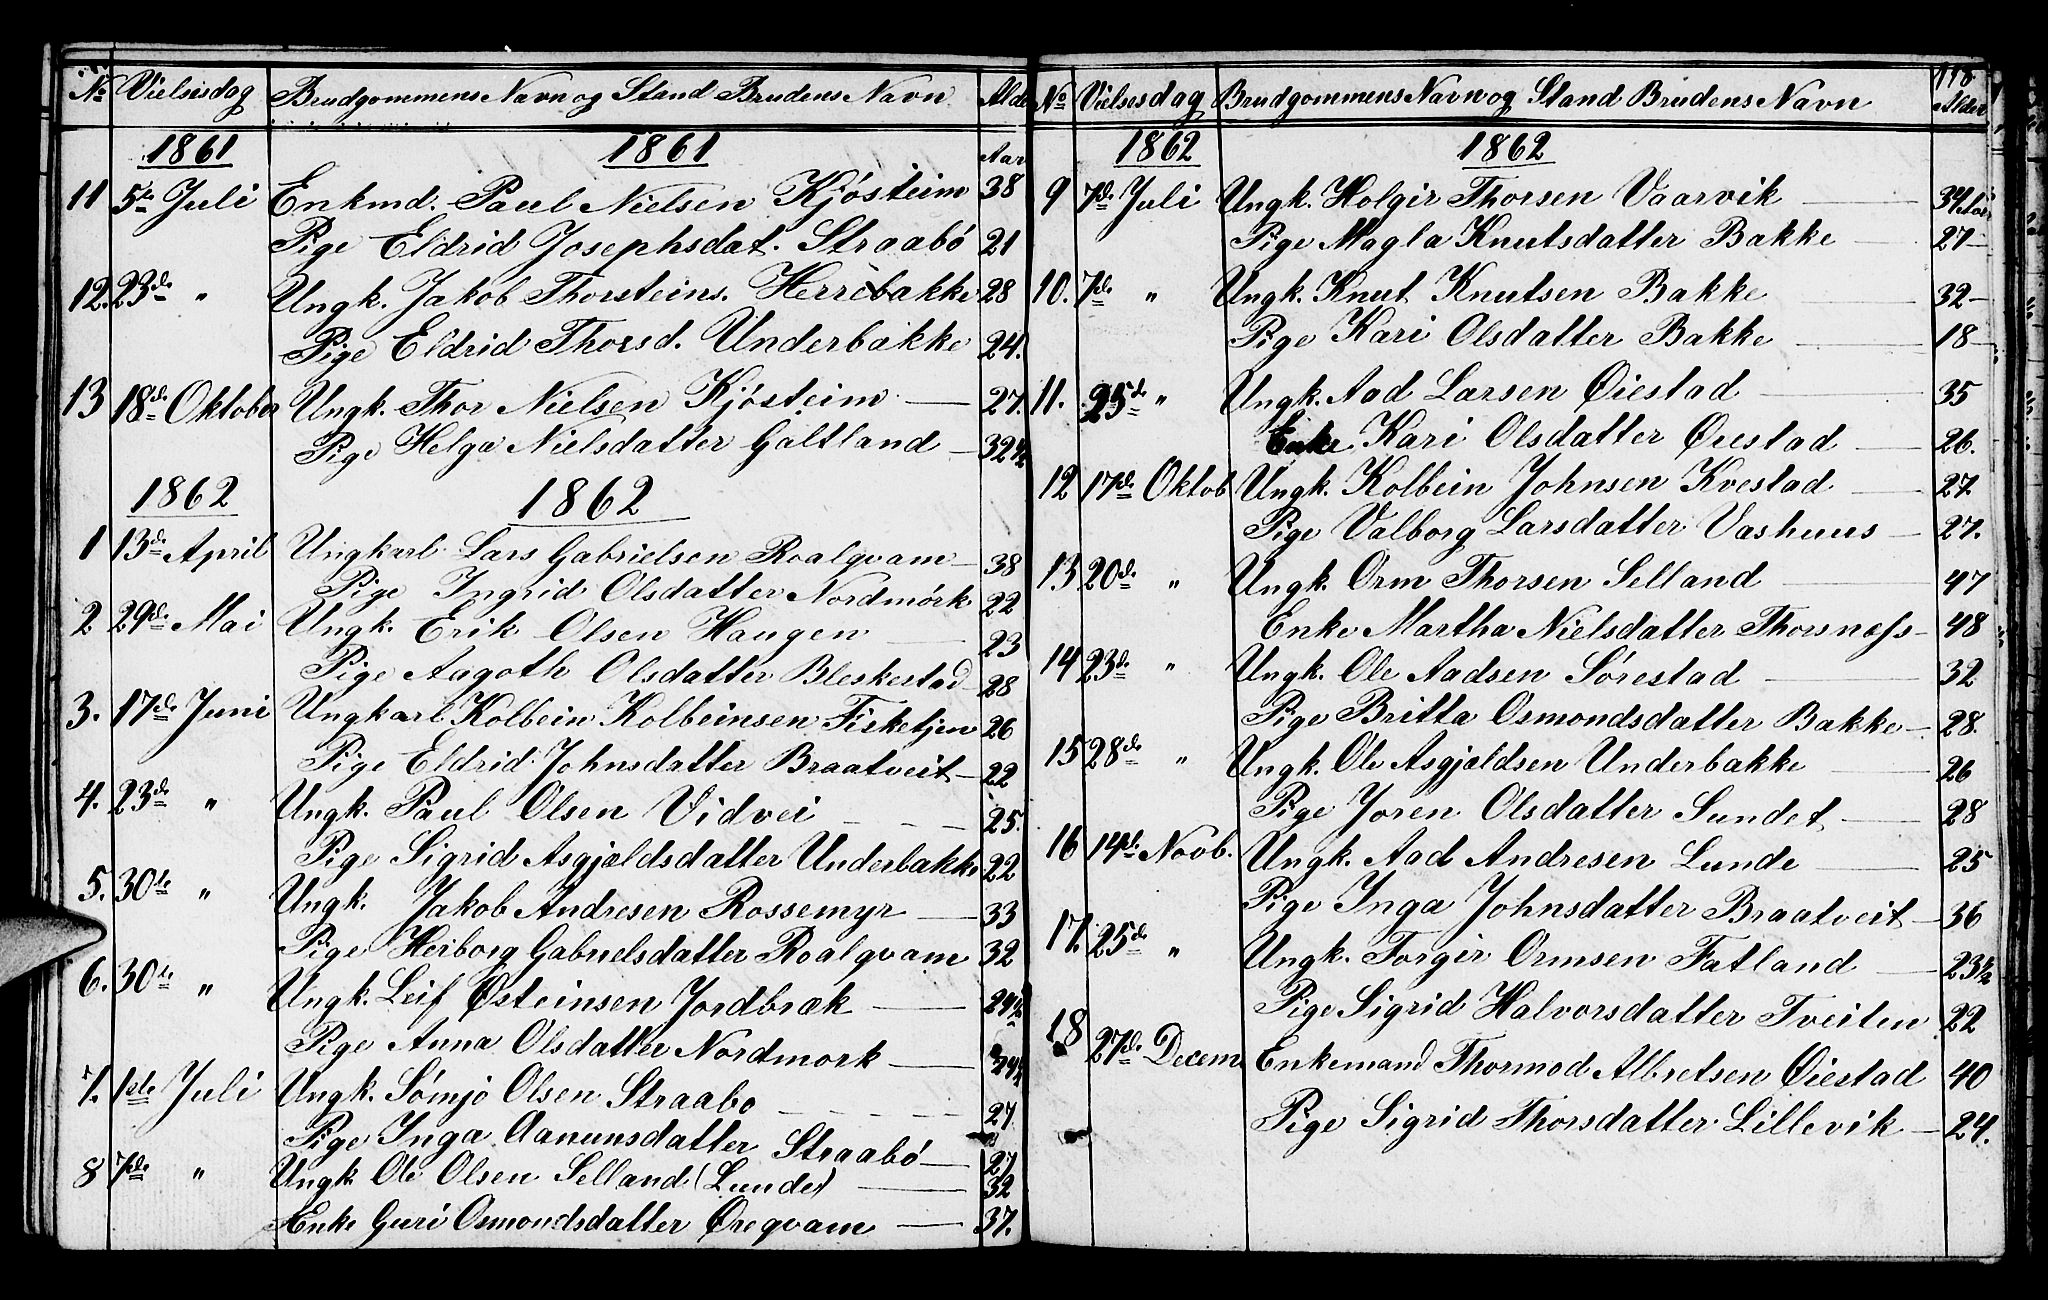 No Vielsesdag Brudgommens Navn og Stand Brudens Navn Alder
1861 1861 Aar
11 5te Juli Enkmd. Paul Nielsen Kjösteim 38
Pige Eldrid Josephsdat. Straabö 21
12. 23de " Ungk. Jakob Thorsteins. Herrebakke 28
Pige Eldrid Thorsd. Underbakke 24.
13 18de Oktober Ungk. Thor Nielsen Kjösteim — 27.
Pige Helga Nielsdatter Galtland — 32½
1862 1862
1 13de April Ungkarl Lars Gabrielsen Roalqvam — 38
Pige Ingrid Olsdatter Nordmörk 22
2 29de Mai Ungk. Erik Olsen Haugen — 23
Pige Aagoth Olsdatter Bleskestad 28
3. 17de Juni Ungkarl Kolbein Kolbeinsen Fisketjen 26
Pige Eldrid Johnsdatter Braatveit — 22
4. 23de " Ungk. Paul Olsen Vidvei — 25.
Pige Sigrid Asgjældsdatter Underbakke 22
5. 30te " Ungk. Jakob Andresen Rossemyr — 33
Pige Herborg Gabrielsdatter Roalqvam 32
6. 30te " Ungk. Leif Østeinsen Jordbræk — 29½
Pige Anna Olsdatter Nordmork —
7. 1ste Juli Ungk. Sömjö Olsen Straabo — 27
Pige Inga Aanunsdatter Straabö — 27
8 7de " Ungk Ole Olsen Selland (Lunde) — 32
Enke Guri Osmondsdatter Øreqvam — 37.
118
No Vielsesdag Brudgommens Navn og Stand Brudens Navn Alder
1862 1862
9 7de Juli Ungk. Holgir Thorsen Vaarvik — 34 Aar
Pige Magla Knutsdatter Bakke — 27 —
10. 7de " Ungk. Knut Knutsen Bakke — 32 —
Pige Kari Olsdatter Bakke — 18 —
11. 25de " Ungk. Aad Larsen Øiestad — 35
Enke Kari Olsdatter Øiestad — 26.
12 17de Oktob Ungk. Kolbein Johnsen Kvestad — 27.
Pige Valborg Larsdatter Vashuus — 27.
13 20de " Ungk. Orm Thorsen Selland — 47
Enke Martha Nielsdatter Thorsnæss — 48
14 23de " Ungk. Ole Aadsen Sørestad — 32
Pige Britta Osmondsdatter Bakke — 28.
15 28de " Ungk. Ole Asgjældsen Underbakke — 26
Pige Joren Olsdatter Sundet — 28
16 14de Novb. Ungk. Aad Andresen Lunde — 25
Pige Inga Johnsdatter Braatveit — 36
17. 25de " Ungk. Torgir Ormsen Fatland — 23½
Pige Sigrid Halvorsdatter Tveiten 22
18 27de Decem Enkemand Thormod Albretsen Øiestad 40
Pige Sigrid Thorsdatter Lillevik — 24.